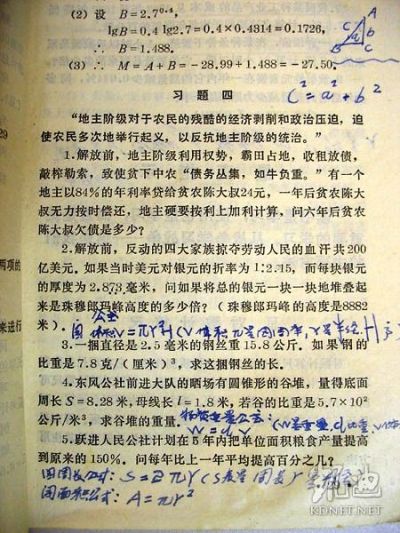 (2) 设 B=2.7⁰·⁴,
lgB=0.4 lg2.7=0.4×0.4314=0.1726,
∴ B=1.488.
(3) ∴ M=A+B=-28.99+1.488=-27.50.
A
C
b
a
B
C
习题四
C²=a²+b²
“地主阶级对于农民的残酷的经济剥削和政治压迫,迫
使农民多次地举行起义,以反抗地主阶级的统治。”
29
1.解放前,地主阶级利用权势,霸田占地,收租放债,
敲榨勒索,致使贫下中农“债务丛集,如牛负重。”有一个
地主以84%的年利率贷给贫农陈大叔24元,一年后贫农陈大
叔无力按时偿还,地主硬要按利上加利计算,问六年后贫农
陈大叔欠债是多少?
2.解放前,反动的四大家族掠夺劳动人民的血汗共200
两项的
亿美元。如果当时美元对银元的折率为1:2.15,而每块银元
的厚度为2.873毫米,问如果将总的银元一块一块地堆叠起
来是珠穆郎玛峰高度的多少倍?(珠穆郎玛峰的高度是8882
来进行
公式
米)。
3.一捆直径是2.5毫米的钢丝重15.8公斤,如果钢的
比重是7.8克/(厘米)³,求这捆钢丝的长。
4.东风公社前进大队的晒场有圆锥形的谷堆,量得底面
周长S=8.28米,母线长l=1.8米,若谷的比重是5.7×10²
公斤/米³,求谷堆的重量。
W=d V
5.跃进人民公社计划在5年内把单位面积粮食产量提高
到原来的150%。问每年比上一年平均提高百分之几?
圆周长公式: S=2πr
圆面积公式: A=πr²
KDNET.NET